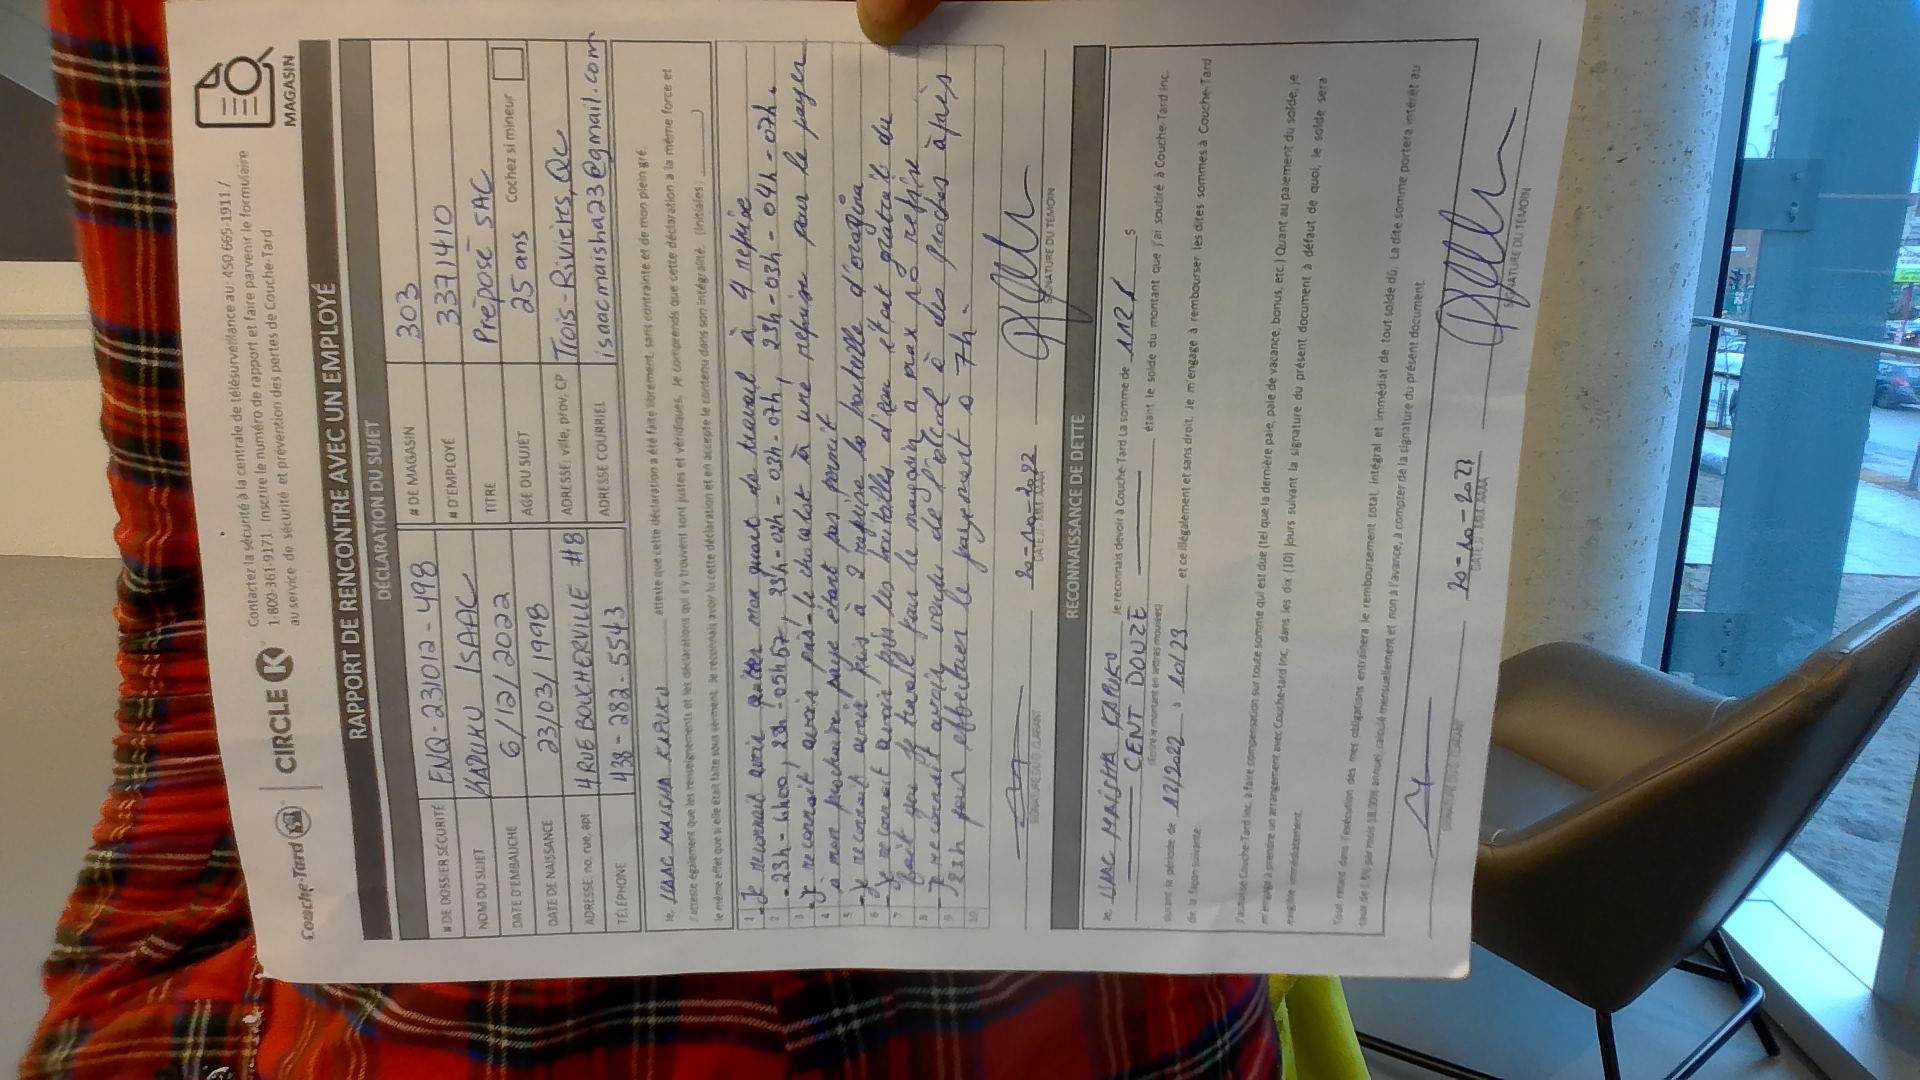 Couche-Tard
CIRCLE K
Contactez la sécurité à la centrale de télésurveillance au: 450 665-1911 /
1-800-361-9171. Inscrire le numéro de rapport et faire parvenir le formulaire
au service de sécurité et prévention des pertes de Couche-Tard.
MAGASIN
RAPPORT DE RENCONTRE AVEC UN EMPLOYÉ
DÉCLARATION DU SUJET
# DE DOSSIER SÉCURITÉ ENQ-23012-498 # DE MAGASIN 303
NOM DU SUJET KAPUKU ISAAC # D'EMPLOYÉ 3371410
DATE D'EMBAUCHE 6/12/2022 TITRE Préposé SAC
DATE DE NAISSANCE 23/03/1998 AGE DU SUJET 25 ans Cochez si mineur
ADRESSE: no. rue, apt 4 RUE BOUCHERVILLE #8 ADRESSE: ville, prov, CP Trois-Rivières, QC
TÉLÉPHONE 438-282-5543 ADRESSE COURRIEL isaacmaisha23@gmail.com
Je, ISAAC MAISHA KAPUKU atteste que cette déclaration a été faite librement, sans contrainte et de mon plein gré.
J'atteste également que les renseignements et les déclarations qui s'y trouvent sont justes et véridiques. Je comprends que cette déclaration a la même force et
le même effet que si elle était faite sous serment. Je reconnais avoir lu cette déclaration et en accepte le contenu dans son intégralité. (Initiales: )
1 - Je reconnait avoir quitter mon quart de travail à 4 reprise
2 - 23h - 4h00, 23h - 05h57, 23h - 02h - 07h, 23h - 03h - 04h - 07h.
3 - Je reconnait avoir pris le chocolat à une reprise pour le payer
4 a mon prochaine paye étant pas permit
5 - Je reconnait avoir pris à 2 reprise la bouteille d'
6 - Je reconnait avoir pris les bouteilles d'eau étant gratuits du
7 fait que je travail pour le magasin a max 10 reprise
8 - Je reconnait avoir vendu de l'alcol à des proches après
9 23h pour effectuer le payement a 7h.
10
SIGNATURE DU DÉCLARANT
20-10-2022
DATE JJ-MM-AAAA
SIGNATURE DU TÉMOIN
RECONNAISSANCE DE DETTE
Je, ISAAC MAISHA KAPUKU, Je reconnais devoir à Couche-Tard La somme de 112 $
CENT DOUZE étant le solde du montant que j'ai soutiré à Couche-Tard Inc.
(Écrire le montant en lettres moulées)
durant la période de 12/2022 à 10/23 et ce illégalement et sans droit. Je m'engage à rembourser les dites sommes à Couche-Tard
de la façon suivante:
J'autorise Couche-Tard Inc. à faire compensation sur toute somme qui est due (tel que la dernière paie, paie de vacance, bonus, etc.) Quant au paiement du solde, je
m'engage à prendre un arrangement avec Couche-tard Inc. dans les dix (10) jours suivant la signature du présent document à défaut de quoi, le solde sera
exigible immédiatement.
Tout retard dans l'exécution des mes obligations entraînera le remboursement total, intégral et immédiat de tout solde dû. La dite somme portera intérêt au
taux de 1.5% par mois 18.00% annuel, calculé mensuellement et non à l'avance, à compter de la signature du présent document.
20-10-2023
DATE JJ-MM-AAAA
SIGNATURE DU TÉMOIN